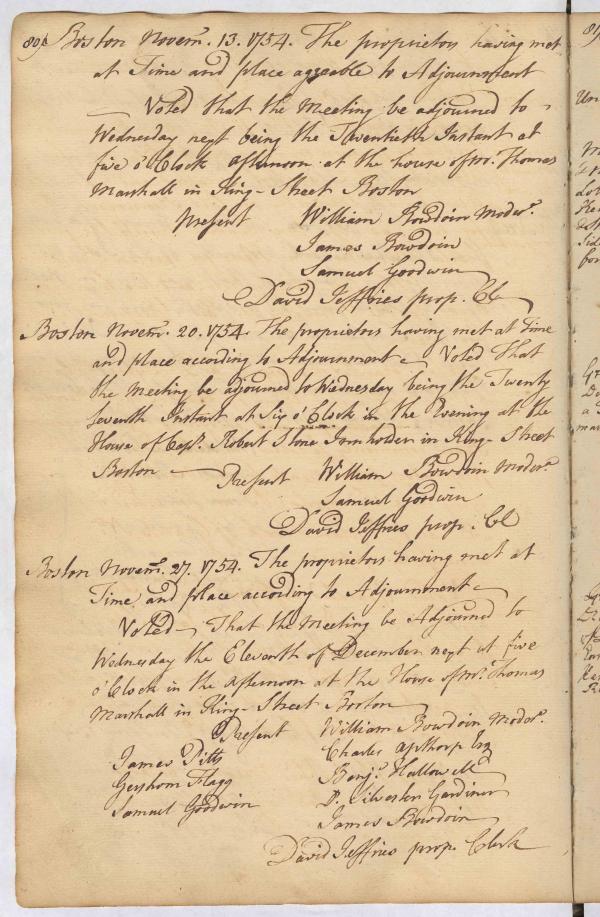 80/ Boston Novem. 13. 1754. The proprietors having met
at Time and place agreeable to Adjournment
Voted that the Meeting be adjourned to
Wednesday next being the Twentieth Instant at
five o'Clock afternoon at the house of Mr. Thomas
Marshall in King-Street Boston
Present William Bowdoin Moder.
James Bowdoin
Samuel Goodwin
David Jeffries prop. Cl
Boston Novem. 20. 1754. The proprietors having met at Time
and place according to Adjournment Voted That
the Meeting be adjourned to Wednesday being the Twenty
seventh Instant at Six o'Clock in the Evening at the
House of Capt. Robert Stone Innholder in King-Street
Boston Present William Bowdoin Moder.
Samuel Goodwin
David Jeffries prop. Cl
Boston Novem. 27. 1754. The proprietors having met at
Time and place according to Adjournment
Voted That the Meeting be Adjourned to
Wednesday the Eleventh of December next at five
o'Clock in the afternoon at the House of Mr. Thomas
Marshall in King-Street Boston
Present William Bowdoin Moder.
James Pitts Charles Apthorp Esq
Gershom Flagg Benj. Hallowell
Samuel Goodwin D. Silvester Gardiner
James Bowdoin
David Jeffries prop. Clerk